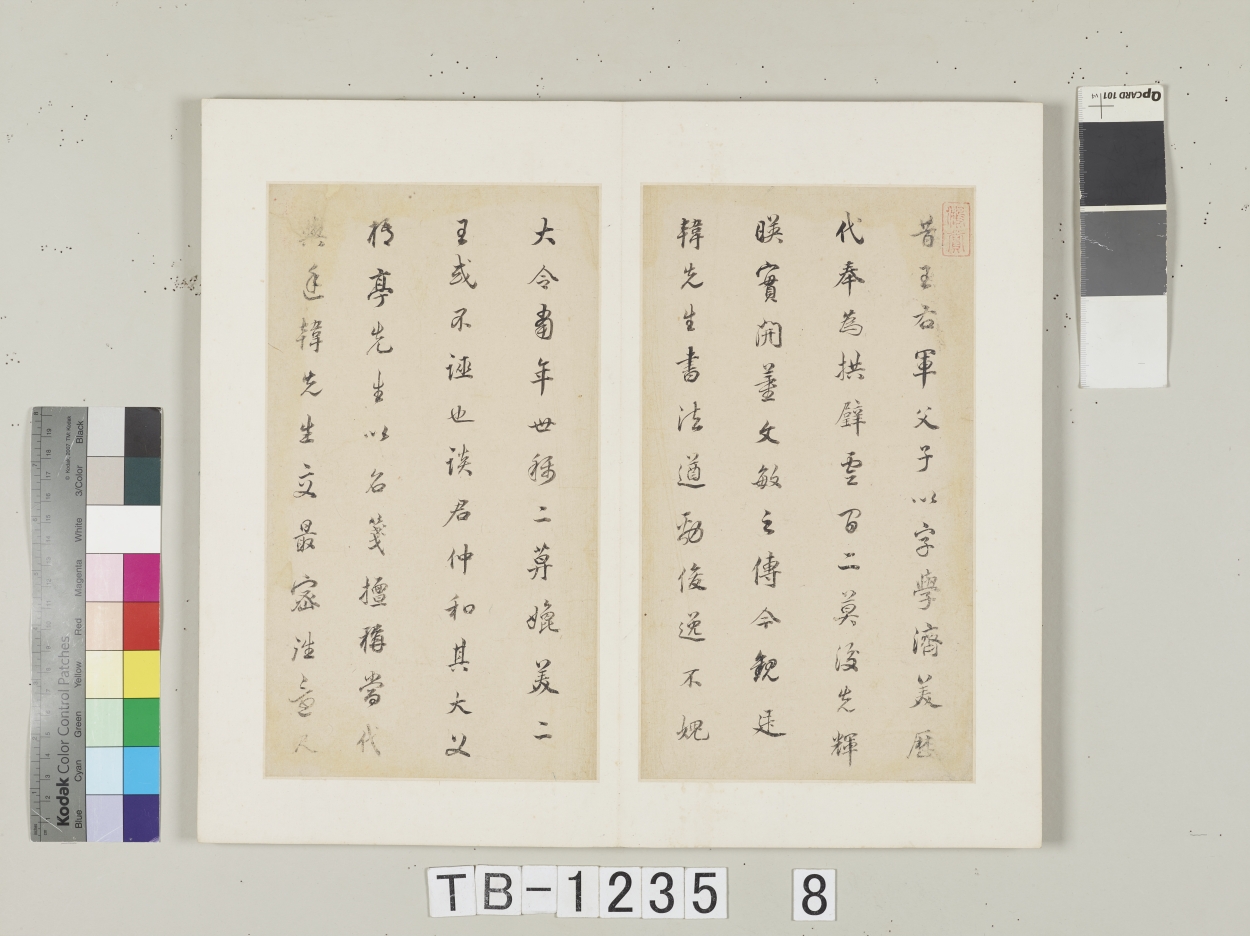 昔王右軍父子以字學濟美歷
代奉為拱璧雲間二莫後先輝
暎實開董文敏之傳今觀廷
韓先生書法遒勁俊逸不媿
大令當年世稱二莫媲美二
王或不誣也談君仲和其大父
亭先生以名箋擅稱當代
與廷韓先生交最密
TB-1235 8
QPCARD 101 v4
Kodak Color Control Patches
© Kodak, 2007, TM: Kodak
Blue Cyan Green Yellow Red Magenta White 3/Color Black